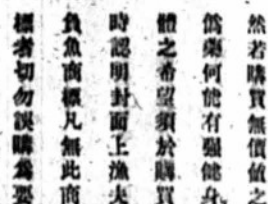 然若購買無價值之
僞藥何能有强健身
體之希望須於購買
時認明封面上漁夫
負魚商標凡無此商
標者切勿誤購爲要